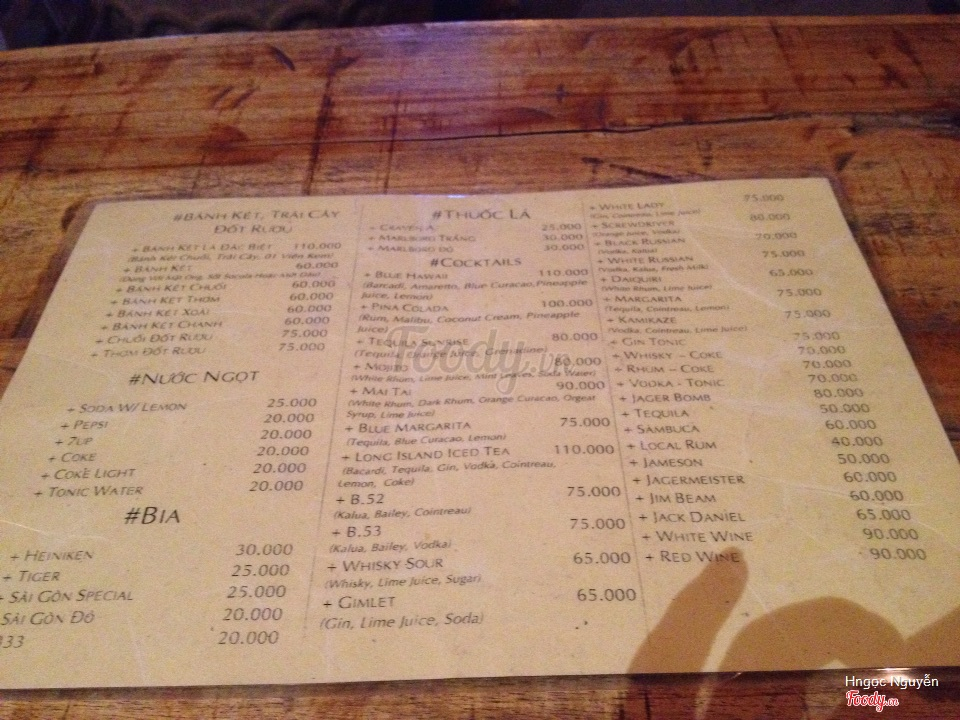 #BÁNH KẾT, TRÁI CÂY
ĐỐT RƯỢU
+ BÁNH KẾT LÁ ĐẶC BIỆT 110.000
(Bánh Kết Chuối, Trái Cây, 01 Viên Kem)
+ BÁNH KẾT 60.000
(Dùng Với Mật Ong, Sốt Socola Hoặc Mứt Dâu)
+ BÁNH KẾT CHUỐI 60.000
+ BÁNH KẾT THƠM 60.000
+ BÁNH KẾT XOÀI 60.000
+ BÁNH KẾT CHANH 60.000
+ CHUỐI ĐỐT RƯỢU 75.000
+ THƠM ĐỐT RƯỢU 75.000
#NƯỚC NGỌT
+ SODA W/ LEMON 25.000
+ PEPSI 20.000
+ 7UP 20.000
+ COKE 20.000
+ COKE LIGHT 20.000
+ TONIC WATER 20.000
#BIA
+ HEINIKEN 30.000
+ TIGER 25.000
+ SÀI GÒN SPECIAL 25.000
SÀI GÒN ĐỎ 20.000
333 20.000
#THUỐC LÁ
+ CRAVEN A 25.000
+ MARLBORO TRẮNG 30.000
+ MARLBORO ĐỎ 30.000
#COCKTAILS
+ BLUE HAWAII 110.000
(Barcadi, Amaretto, Blue Curacao,Pineapple
Juice, Lemon)
+ PINA COLADA 100.000
(Rum, Malibu, Coconut Cream, Pineapple
Juice)
+ TEQUILA SUNRISE 80.000
(Tequila, Orange Juice, Grenadine)
+ MOJITO 80.000
(White Rhum, Lime Juice, Mint Leaves, Soda Water)
+ MAI TAI 90.000
(White Rhum, Dark Rhum, Orange Curacao, Orgeat
Syrup, Lime Juice)
+ BLUE MARGARITA 75.000
(Tequila, Blue Curacao, Lemon)
+ LONG ISLAND ICED TEA 110.000
(Bacardi, Tequila, Gin, Vodka, Cointreau,
Lemon, Coke)
+ B.52 75.000
(Kalua, Bailey, Cointreau)
+ B.53 75.000
(Kalua, Bailey, Vodka)
+ WHISKY SOUR 65.000
(Whisky, Lime Juice, Sugar)
+ GIMLET 65.000
(Gin, Lime Juice, Soda)
+ WHITE LADY 75.000
(Gin, Cointreau, Lime Juice)
+ SCREWDRIVER 80.000
(Orange Juice, Vodka)
+ BLACK RUSSIAN 70.000
(Vodka, Kalua)
+ WHITE RUSSIAN 75.000
(Vodka, Kalua, Fresh Milk)
+ DAIQUIRI 65.000
(White Rhum, Lime Juice)
+ MARGARITA 75.000
(Tequila, Cointreau, Lemon)
+ KAMIKAZE 75.000
(Vodka, Cointreau, Lime Juice)
+ GIN TONIC 75.000
+ WHISKY – COKE 70.000
+ RHUM – COKE 70.000
+ VODKA - TONIC 70.000
+ JAGER BOMB 80.000
+ TEQUILA 50.000
+ SAMBUCA 60.000
+ LOCAL RUM 40.000
+ JAMESON 50.000
+ JAGERMEISTER 60.000
+ JIM BEAM 60.000
+ JACK DANIEL 65.000
+ WHITE WINE 90.000
+ RED WINE 90.000
Foody.vn
Hngọc Nguyễn
Foody.vn